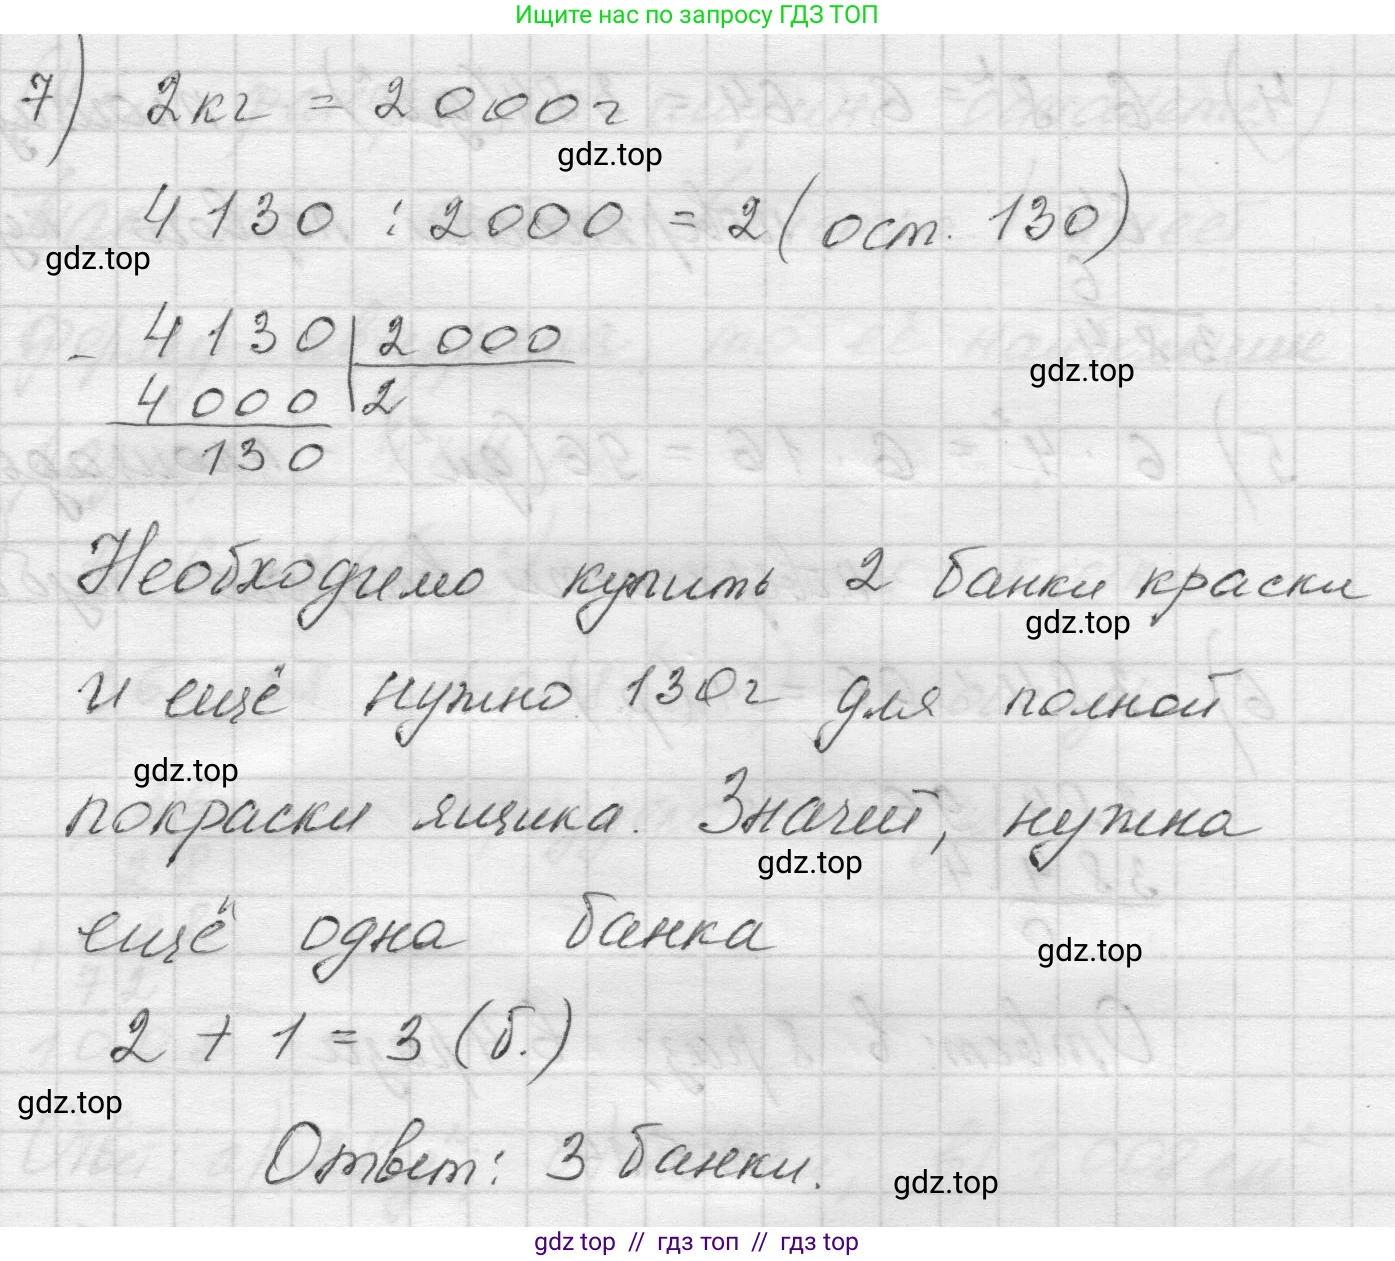 Ищите нас по запросу ГДЗ ТОП
7) 2кг = 2000г
gdz.top
4130 : 2000 = 2 (ост. 130)
gdz.top
- 4130 | 2000
gdz.top
4000 | 2
130
Необходимо купить 2 банки краски
gdz.top
и ещё нужно 130г для полной
gdz.top
покраски ящика. Значит, нужна
gdz.top
ещё одна банка
gdz.top
2 + 1 = 3 (б.)
gdz.top
Ответ: 3 банки.
gdz.top
gdz top // гдз топ // гдз top